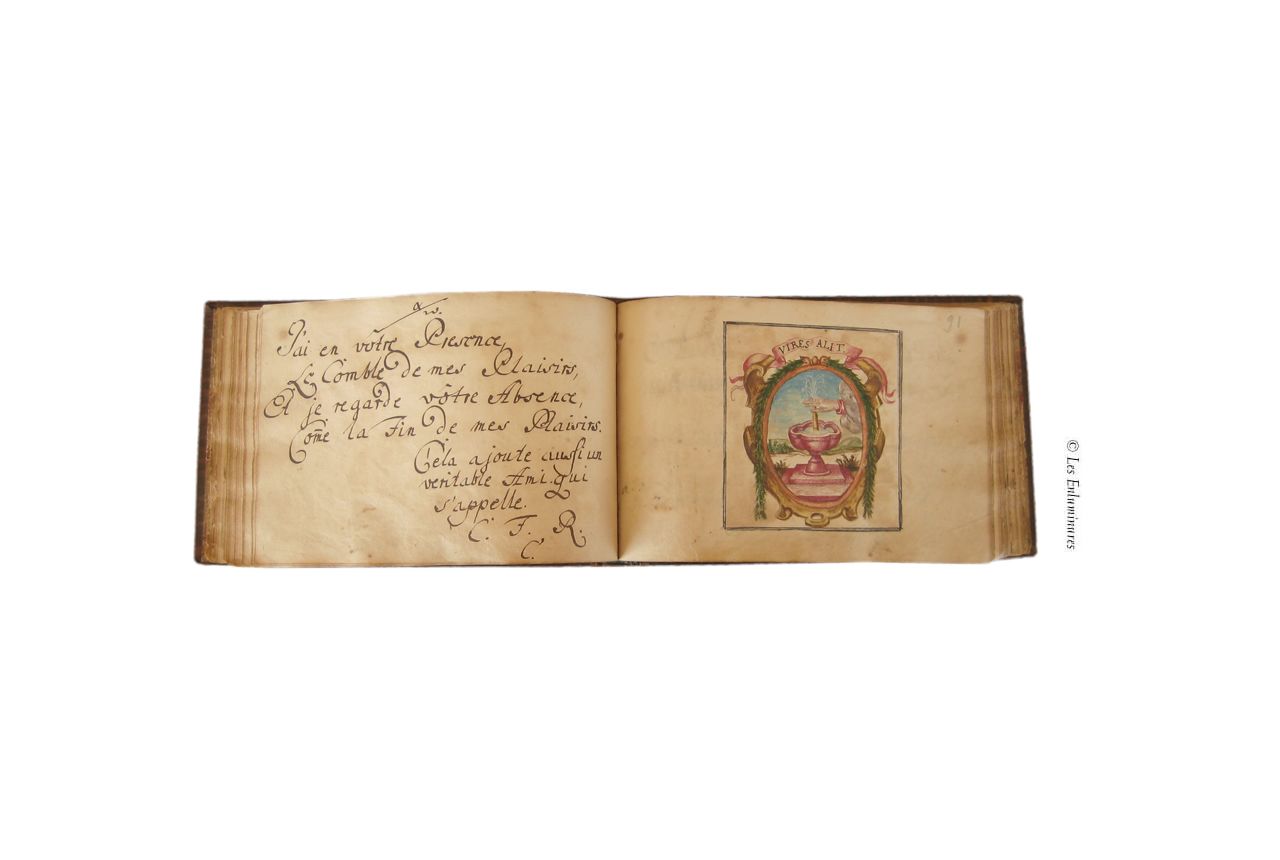 J'ai en vôtre Presence,
Le Comble de mes Plaisirs,
Et je regarde vôtre Absence,
Com̄e la Fin de mes Plaisirs.
Cela ajoute aussi un
veritable Ami qui
s'appelle.
C. F. R.
C.
91
VIRES ALIT.
© Les Enluminures